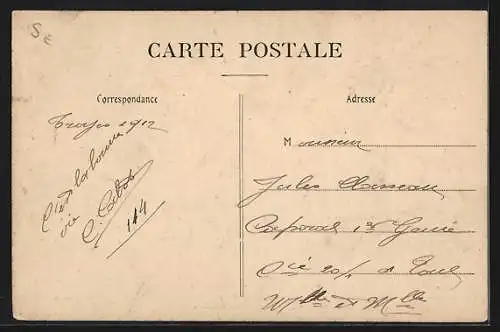 SE
CARTE POSTALE
Correspondance
Troyes 1912
C'est la bonne
vie
C. Cabot
144
Adresse
Monsieur
Jules
Caporal Génie
Cie 20/1 à Toul
Mthe et Mlle